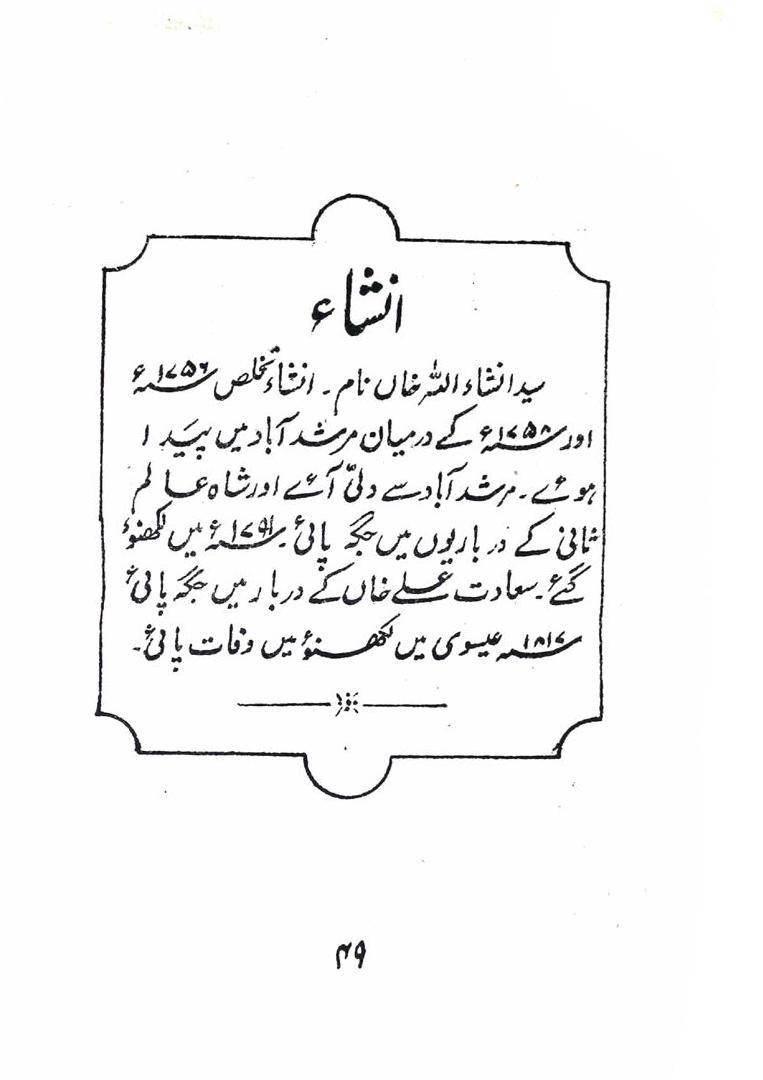 انشاء
سید انشاء اللہ خاں نام۔ انشاء تخلص ۱۷۵۶؁ء
اور ۱۷۵۸؁ء کے درمیان مرشد آباد میں پیدا
ہوئے۔ مرشد آباد سے دلّی آئے اور شاہ عالم
ثانی کے درباریوں میں جگہ پائی۔ ۱۷۹۱؁ء میں لکھنؤ
گئے۔ سعادت علے خاں کے دربار میں جگہ پائی
۱۸۱۷؁ عیسوی میں لکھنؤ میں وفات پائی۔
۴۹